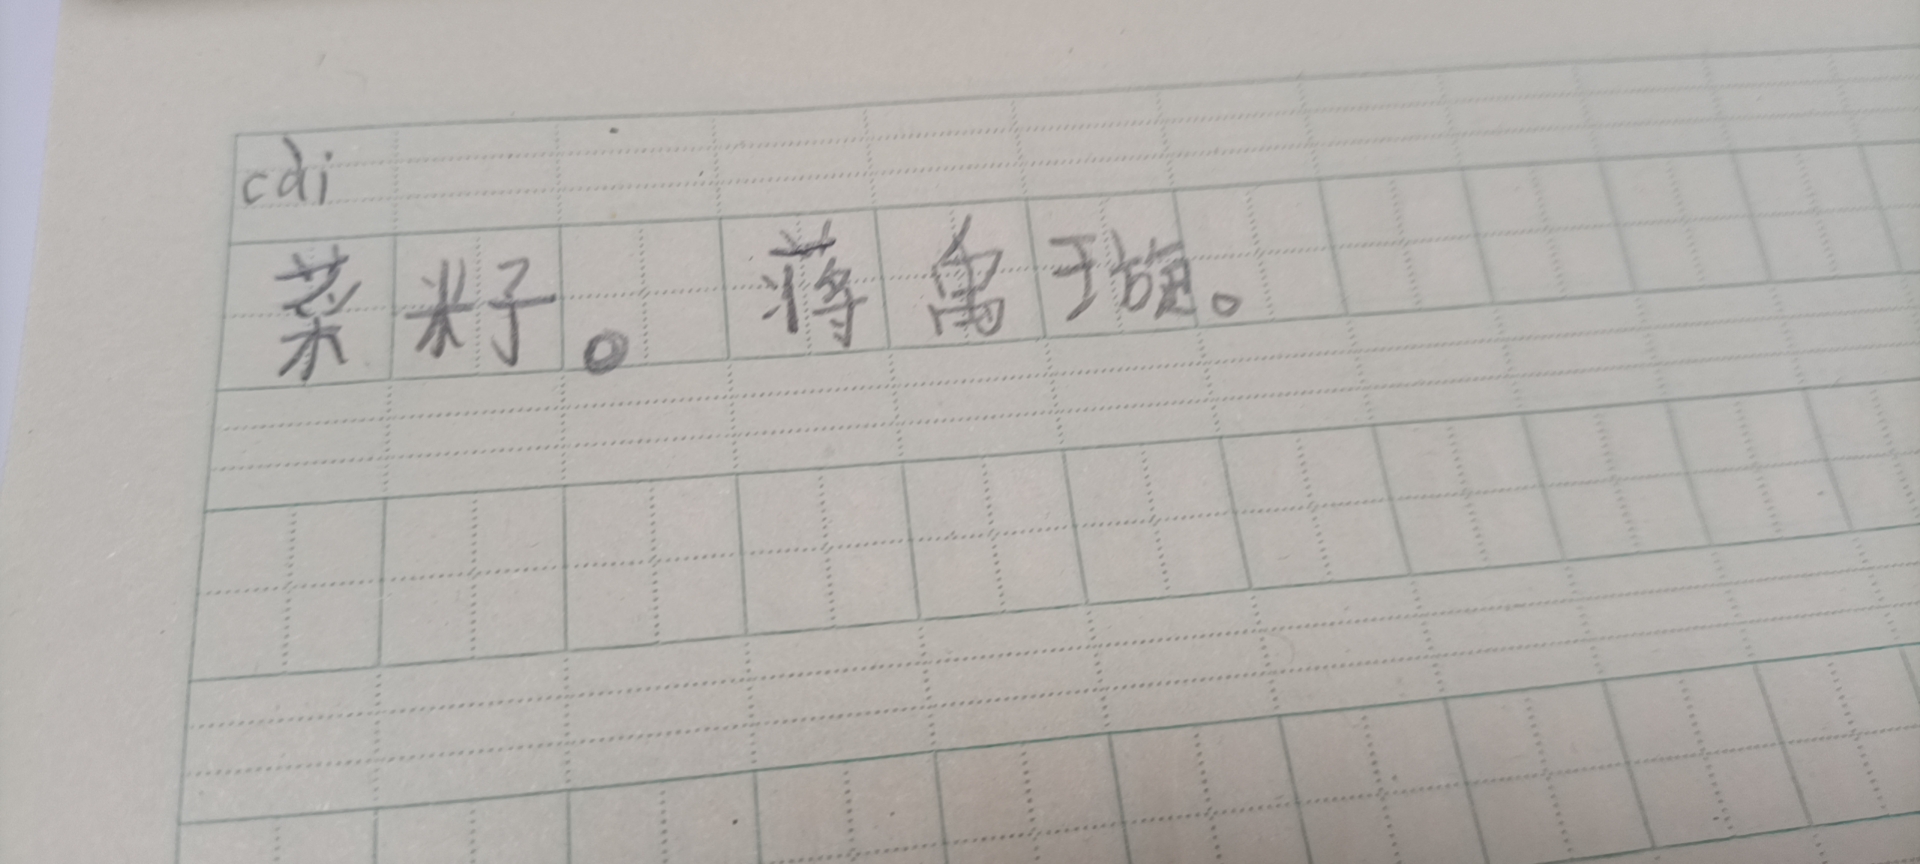 cài
菜籽。蒋禹璇。